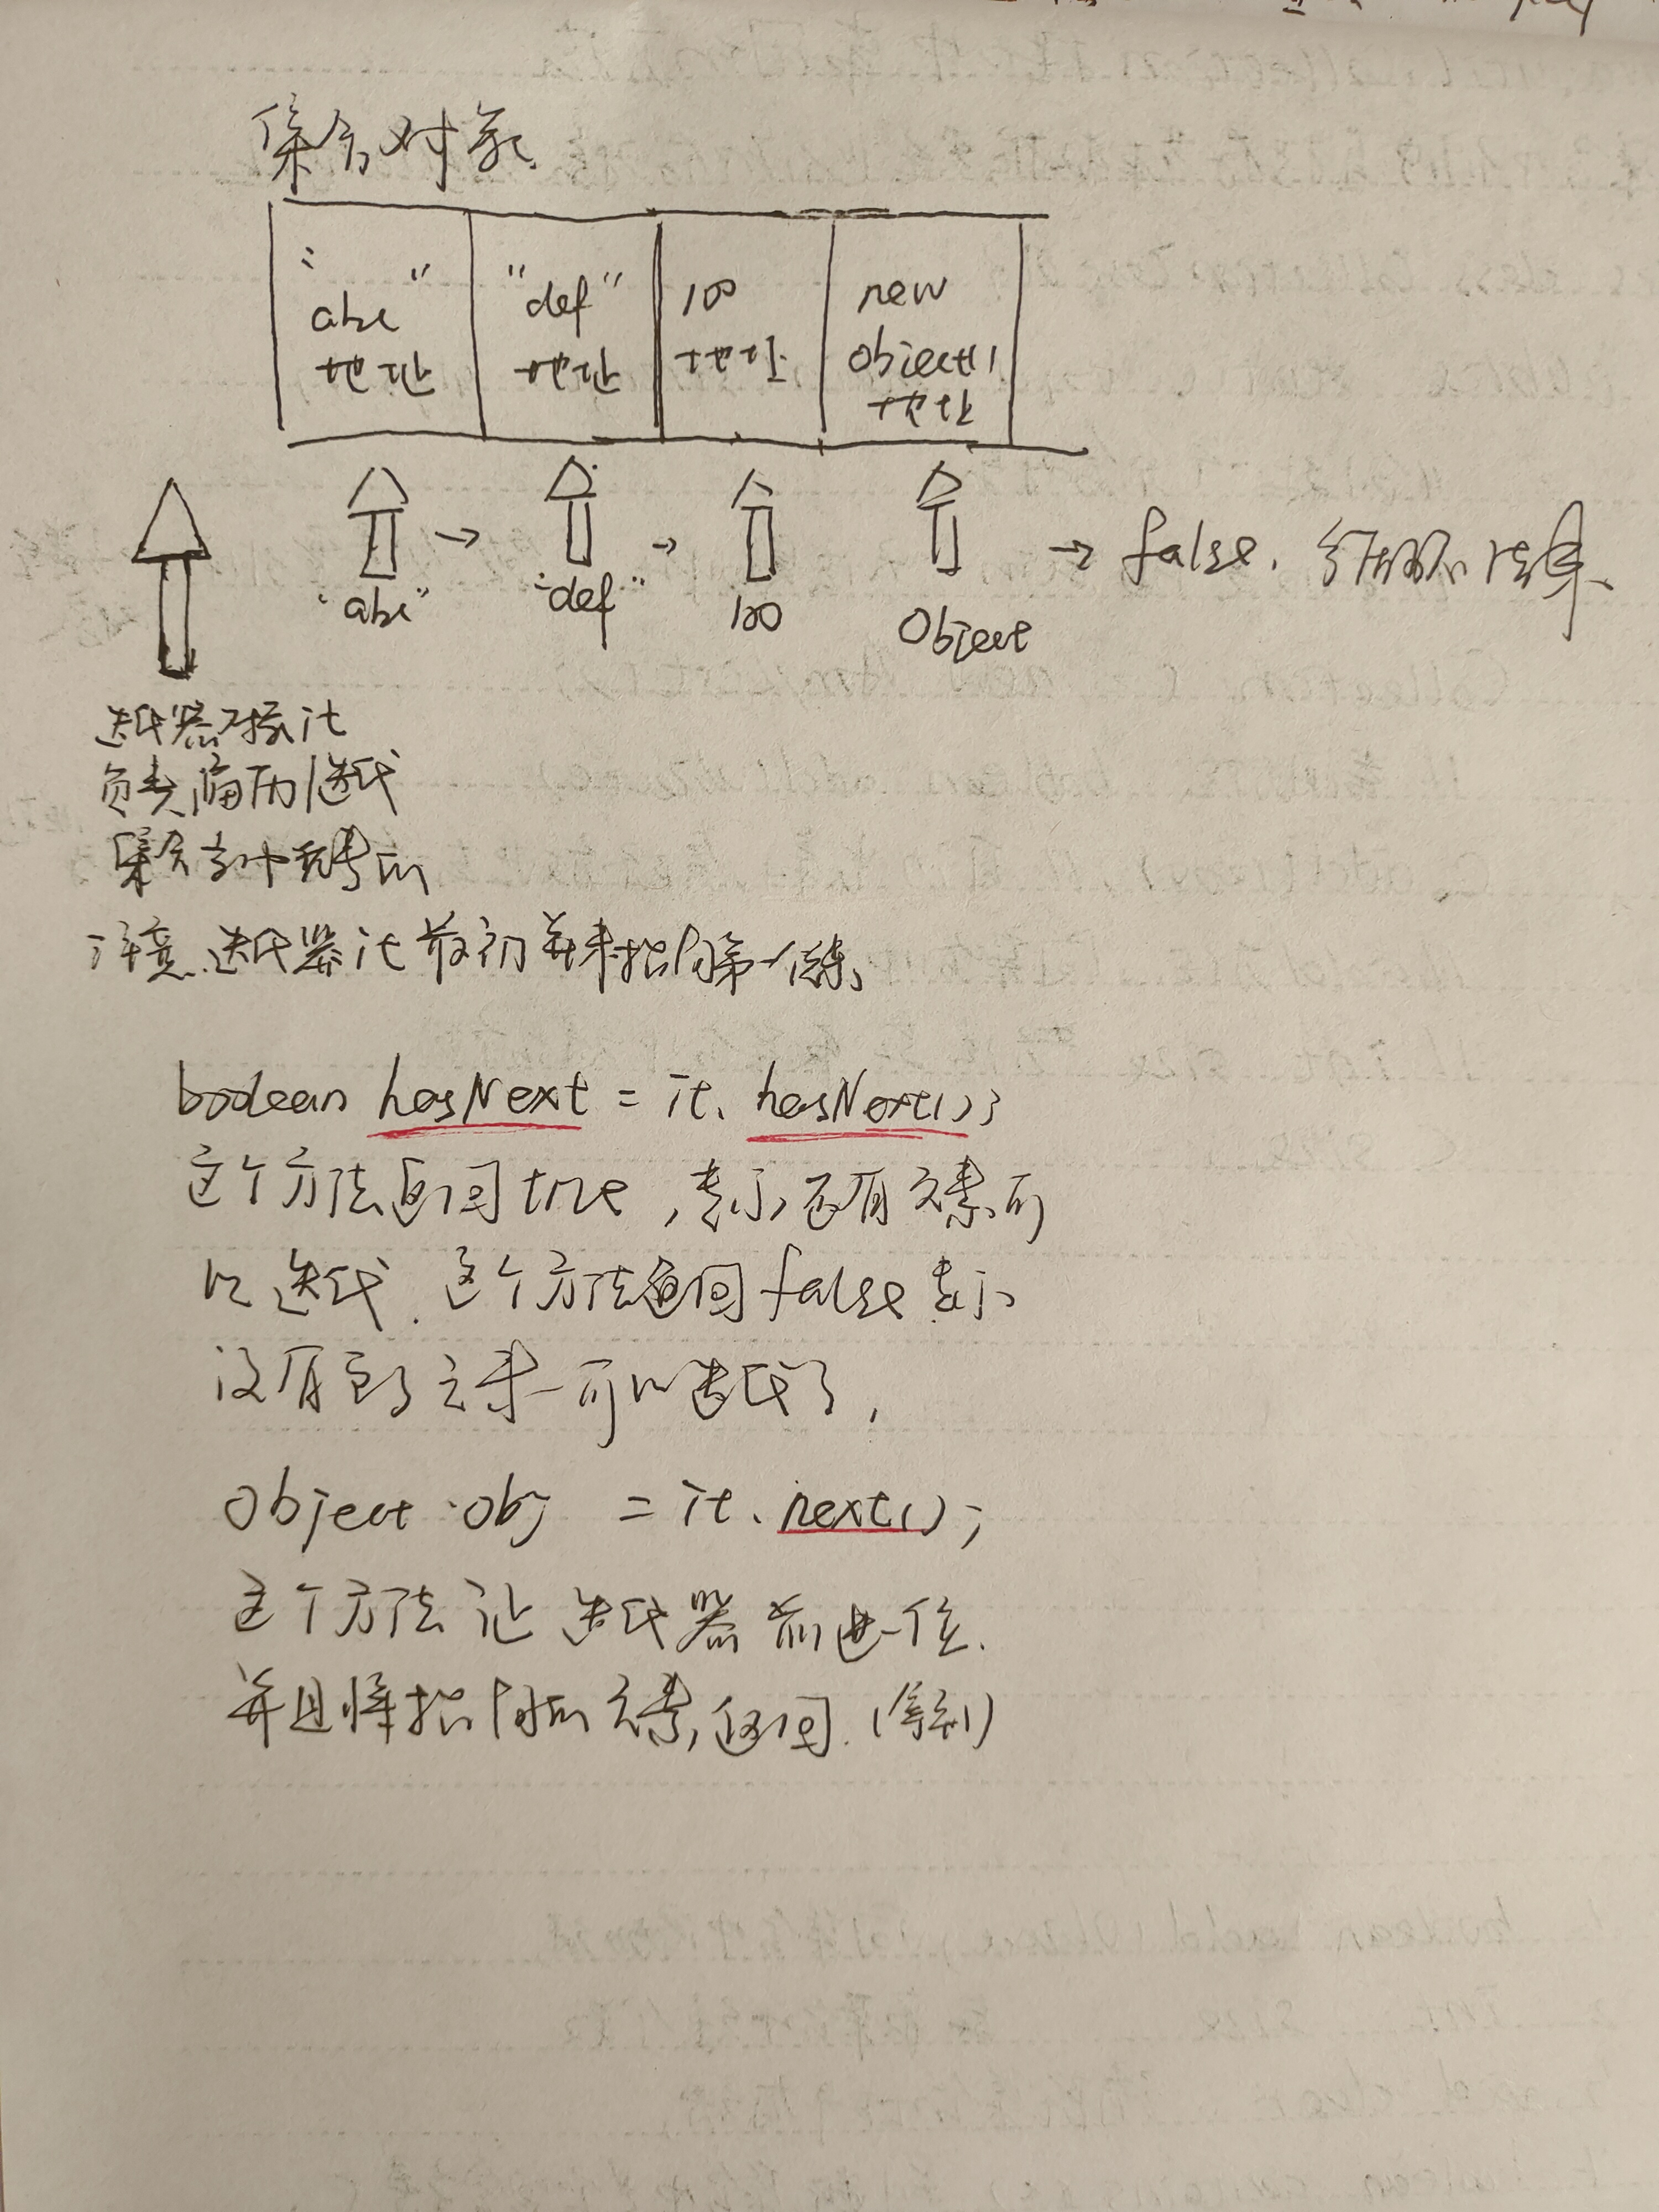 集合对象
"abc" "def" 100 new
地址 地址 地址 Object()
地址
"abc" → "def" → 100 Object → false. 结束
迭代器对象it
负责遍历/迭代
集合当中元素的
注意.迭代器it最初并未指向第一个元素,
boolean hasNext = it. hasNext();
这个方法返回true,表示还有元素可
以迭代.这个方法返回false表示
没有更多元素可以迭代了,
Object obj = it. next();
这个方法让迭代器前进一位.
并且将指向的元素返回.(拿到)